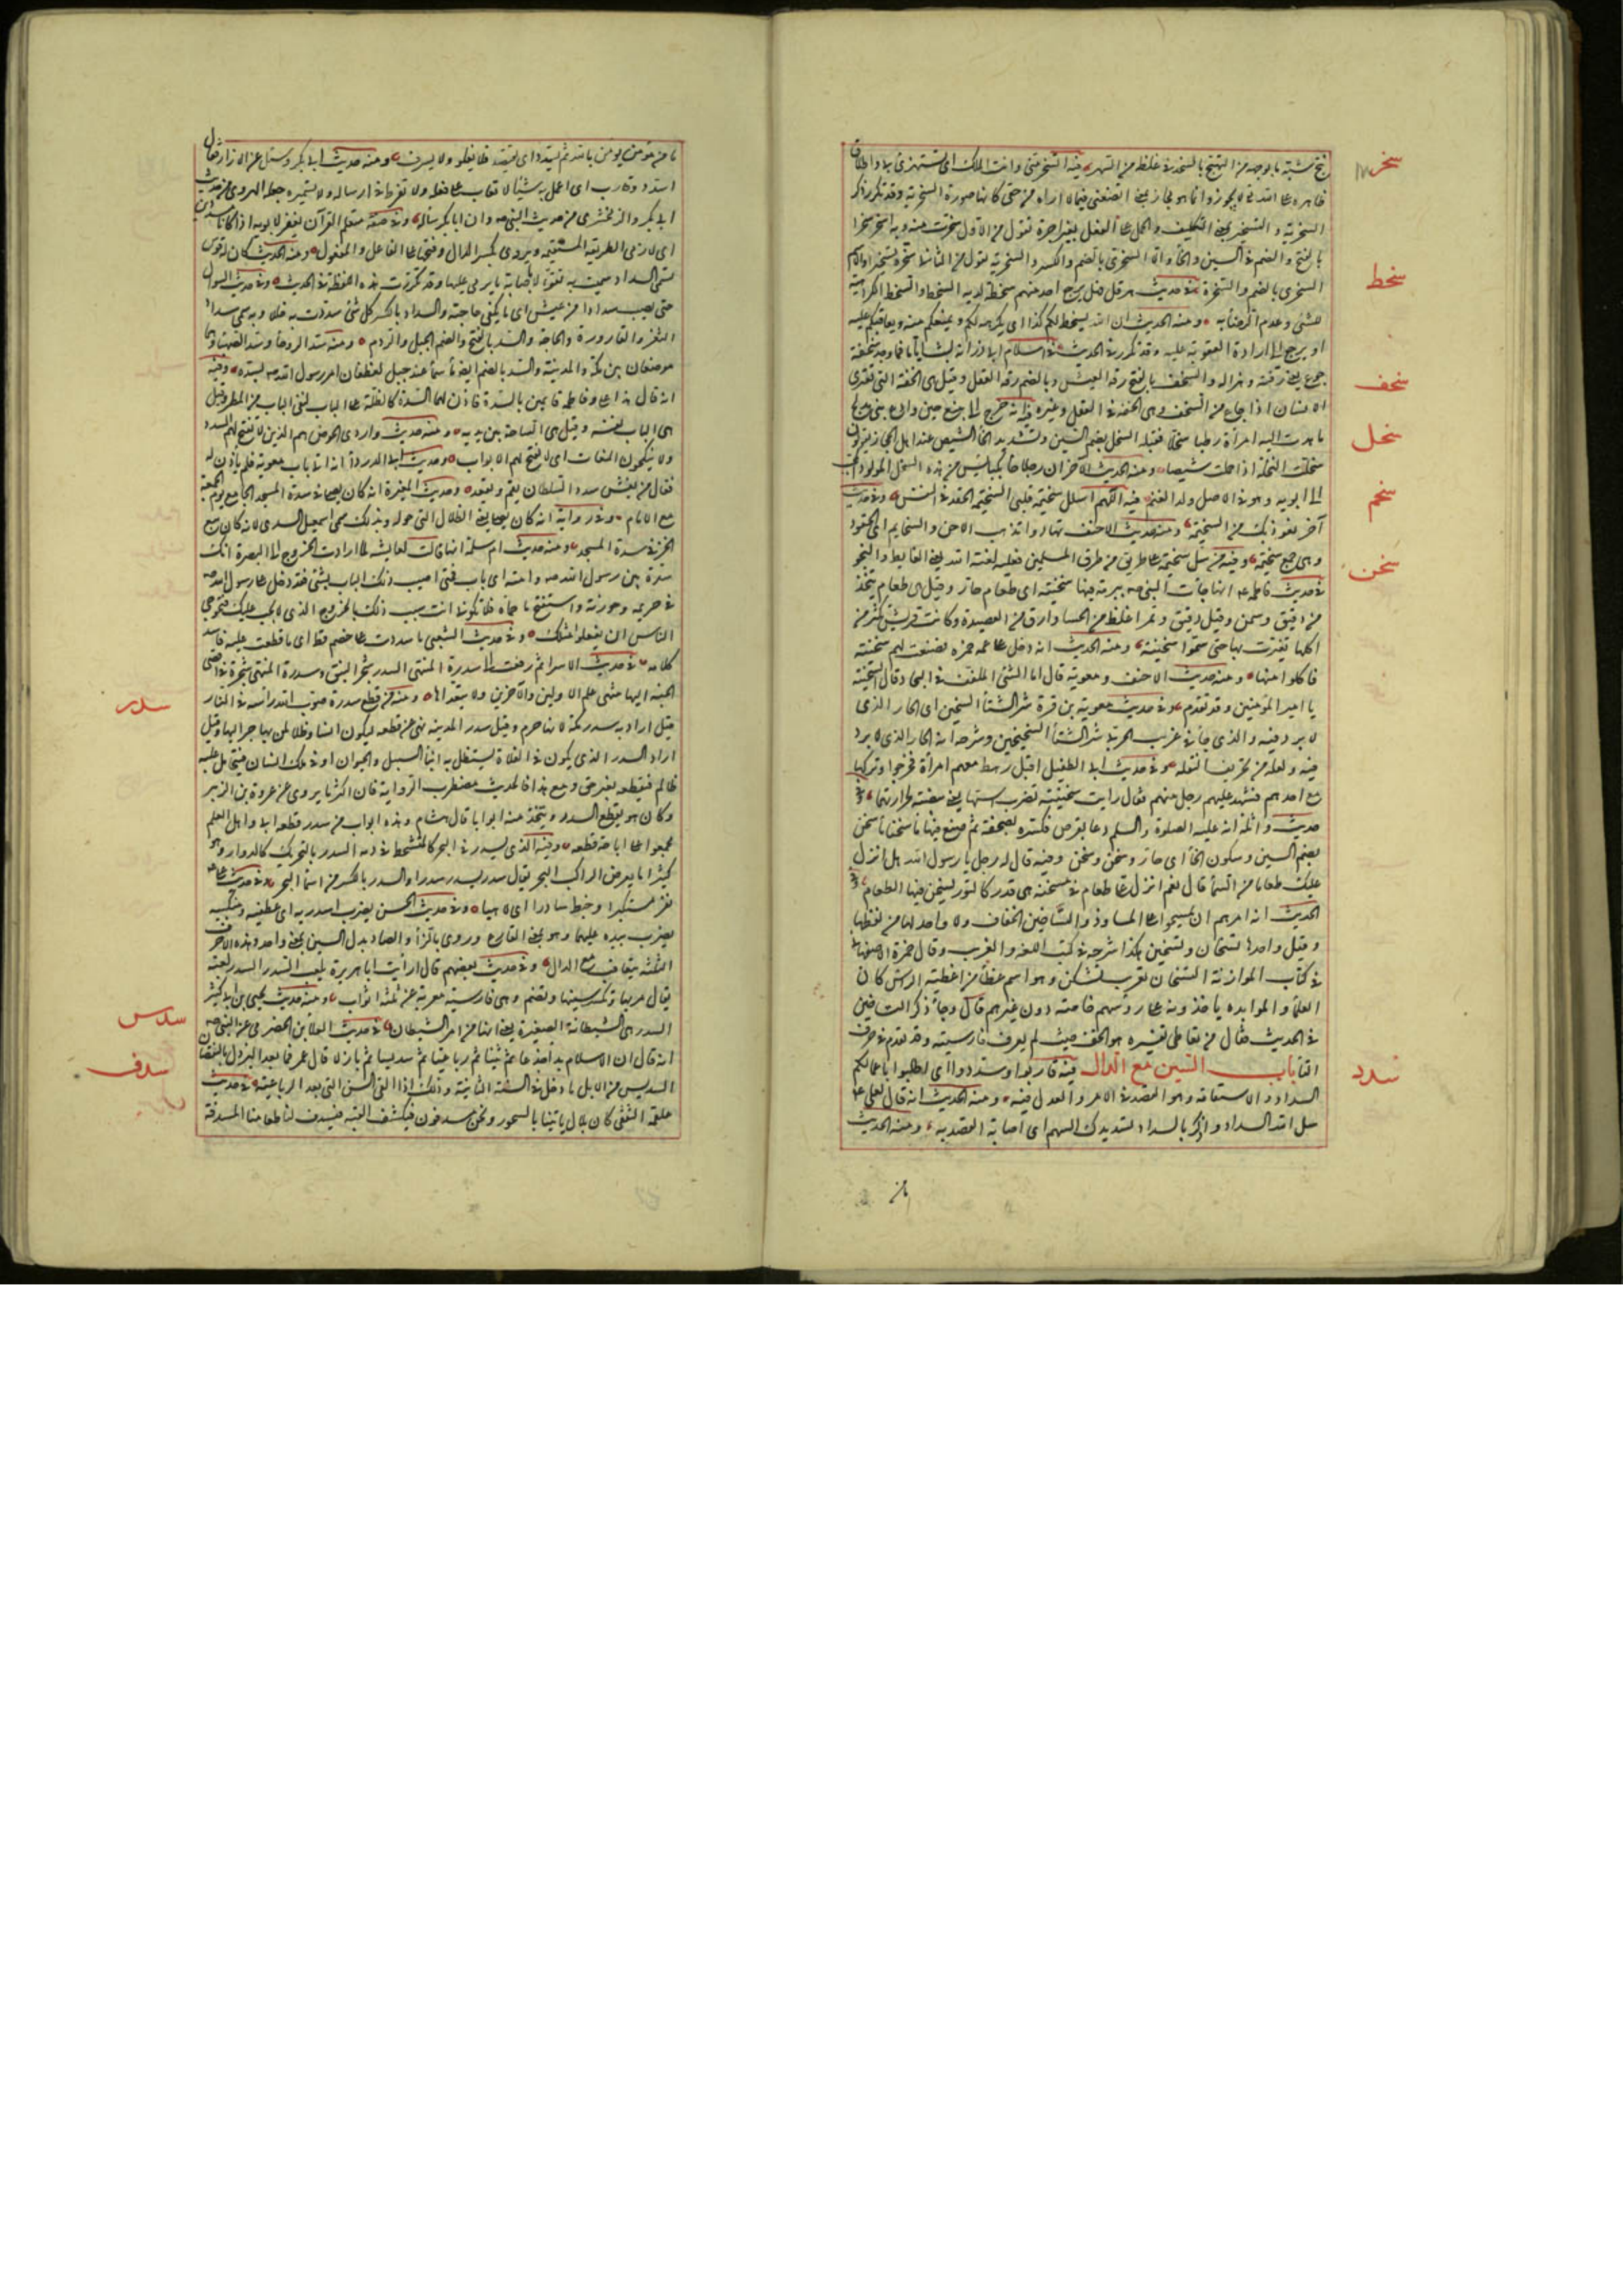 سخر
ظاهره على الله تعالى لا يجوز وانما هو مجاز بمعنى
السخرية والتسخير بمعنى التكليف والحمل على الفعل بغير اجرة تقول من الاول سخرت منه وبه اسخر سخرا
بالفتح والضم في السين والخاء
السخرى بالضم والسخرة في حديث هرقل فهل يرجع احد منهم سخطة لدينه السخط والسخط الكراهية
سخط
للشئ وعدم الرضا به ومنه الحديث ان الله يسخط لكم كذا اى يكرهه لكم ويمنعكم منه ويعاقبكم عليه
او يرجع الى ارادة العقوبة عليه وقد تكرر في الحديث في اسلام ابى ذر انه لبث اياما فما وجد سخفة
جوع يعنى رقته وهزاله والسخف بالفتح رقة العيش وبالضم رقة العقل وقيل هى الخفة التى تعترى
سخف
الانسان اذا جاع من السخف وهى الخفة في العقل وغيره فيه انه خرج الى ينبع حين وادع بنى مدلج
فاهدت اليه امرأة رطبا سخلا فقبله السخل بضم السين وتشديد الخاء الشيص عند اهل الحجاز يقولون
سخل
سخلت النخلة اذا حملت شيصا ومنه الحديث الآخر ان رجلا جاء بكبائس من هذه السخل
الى ابويه وهو في الاصل ولد الغنم فيه اللهم اسلل سخيمة قلبى السخيمة الحقد في النفس وفي حديث
سخم
آخر نعوذ بك من السخيمة ومنه حديث الاحنف تهادوا تذهب الاحن والسخايم اى الحقود
وهى جمع سخيمة وفيه من سل سخيمته على طريق من طرق المسلمين فعليه لعنة الله يعنى الغايط والنجو
سخن
في حديث فاطمة انها جاءت النبى ص ببرمة فيها سخينة اى طعام حار وقيل هى طعام يتخذ
من دقيق وسمن وقيل دقيق وتمر اغلظ من الحساء وارق من العصيدة وكانت قريش تكثر من
اكلها فعيرت بها حتى سموا سخينة ومنه الحديث انه دخل على عمه حمزه فصنعت لهم سخينة
فاكلوا منها ومنه حديث الاحنف ومعوية قال له ما الشئ الملفف في البجاد قال السخينة
يا امير المؤمنين وقد تقدم وفي حديث معوية بن قرة شر الشتاء السخين اى الحار الذى
لا برد فيه والذى جاء في غريب الحربى شر الشتاء السخيخين وشرحه انه الحار الذى لا برد
فيه ولعله من تحريف النقلة وفي حديث ابى الطفيل اقبل رهط معهم امرأة فخرجوا وتركوها
مع احدهم فشهد عليهم رجل منهم فقال رايت سخينتيه تضرب استها يعنى بيضتيه لحرارتهما وفي
حديث واثلة انه عليه الصلوة والسلم دعا بقرص فكسره في صحفة ثم صنع فيها ماء سخنا ماء سخن
بضم السين وسكون الخاء اى حار وسخن وسخن وفيه قال له رجل يا رسول الله هل انزل
عليك طعاما من السماء قال نعم انزل على طعام في مسخنة هى قدر كالتور يسخن فيها الطعام وفي
الحديث انه امرهم ان يمسحوا على المشاوذ والتساخين الخفاف ولا واحد لها من لفظها
وقيل واحدها تسخان وتسخين هكذا شرح في كتب اللغة والغريب وقال حمزة الاصفهانى
في كتاب الموازنة التسخان تعريب تشكن وهو اسم غطاء من اغطية الراس كان
العلماء والموابذه ياخذونه على رؤسهم خاصة دون غيرهم قال وجاء ذكر التساخين
في الحديث فقال من تعاطى تفسيره هو الخف حيث لم يعرف فارسيته وقد تقدم في حرف
التاء باب السين مع الدال فيه قاربوا وسددوا اى اطلبوا باعمالكم
سدد
السداد والاستقامة وهو القصد في الامر والعدل فيه ومنه الحديث انه قال لعلى
سل الله السداد واذكر بالسداد تسديدك السهم اى اصابة القصد به ومنه الحديث
ما من مؤمن يؤمن بالله ثم يسدد اى يقتصد فلا يغلو ولا يسرف ومنه حديث ابى بكر وسئل عن الازار فقال
سدد وقارب اى اعمل به شيئا لا تعاب على فعله ولا تفرط في ارساله ولا تشميره جعله الهروى من حديث
ابى بكر والزمخشرى من حديث النبى ص وان ابا بكر سأله وفي صفة متعلم القرآن يغفر لابويه اذا كانا مسددين
اى لازمى الطريقة المستقيمة ويروى بكسر الدال وفتحها على الفاعل والمفعول ومنه الحديث كان له قوس
تسمى السداد سميت به تفؤلا باصابة ما يرمى عليها وقد تكررت هذه اللفظة في الحديث وفي حديث السؤال
حتى يصيب سدادا من عيش اى ما يكفى حاجته والسداد بالكسر كل شئ سددت به خللا وبه سمى سداد
الثغر والقارورة والحاجة والسد بالفتح والضم الجبل والردم ومنه سد الروحاء وسد الصهباء وهما
موضعان بين مكة والمدينة والسد بالضم ايضا ماء سماء عند جبل لغطفان امر رسول الله ص بسده وفيه
انه قال هذا على وفاطمة قائمين بالسدة فاذن لهما السدة كالظلة على الباب لتقى الباب من المطر وقيل
هى الباب نفسه وقيل هى الساحة بين يديه ومنه حديث واردى الحوض هم الذين لا تفتح لهم السدد
ولا ينكحون المنعمات اى لا تفتح لهم الابواب وحديث ابى الدرداء انه اتى باب معوية فلم ياذن له
فقال من يغش سدد السلطان يقم ويقعد وحديث المغيرة انه كان يصلى في سدة المسجد الجامع يوم الجمعة
مع الامام وفي رواية انه كان يصلى يعنى الظلال التى حوله وبذلك سمى اسمعيل السدى لانه كان يبيع
الخمر في سدة المسجد ومنه حديث ام سلمة انها قالت لعايشه لما ارادت الخروج الى البصرة انك
سدة بين رسول الله ص وامته اى باب فمتى اصيب ذلك الباب بشئ فقد دخل على رسول الله ص
في حريمه وحوزته واستفتح ما حماه فلا تكونى انت سبب ذلك بالخروج الذى لا يجب عليك فتحوجى
الناس ان يفعلوا مثلك وفي حديث الشعبى ما سددت على خصم قط اى ما قطعت عليه فاسد
كلامه في حديث الاسراء ثم رفعت الى سدرة المنتهى السدر شجر النبق وسدرة المنتهى شجرة في اقصى
سدر
الجنة اليها منتهى علم الاولين والآخرين ولا يتعداها ومنه من قطع سدرة صوب الله راسه في النار
قيل اراد به سدر مكة لانها حرم وقيل سدر المدينة نهى عن قطعه ليكون انسا وظلا لمن يهاجر اليها وقيل
اراد السدر الذى يكون في الفلاة يستظل به ابناء السبيل والحيوان او في ملك انسان فيتحامل عليه
ظالم فيقطعه بغير حق ومع هذا فالحديث مضطرب الرواية فان اكثر ما يروى عن عروة بن الزبير
وكان هو يقطع السدر ويتخذ منه ابوابا قال هشام وهذه ابواب من سدر قطعه ابى واهل العلم
مجمعوا على اباحة قطعه وفيه الذى يسدر في البحر كالمتشحط في دمه السدر بالتحريك كالدوار وهو
كثيرا ما يعرض لراكب البحر يقال سدر يسدر سدرا والسدر بالكسر من اسماء البحر وفي حديث على
نفر مستكبرا وخبط سادرا اى لاهيا وفي حديث الحسن يضرب اسدريه اى عطفيه ومنكبيه
يضرب بيده عليهما وهو بمعنى الفارغ وروى بالزاء والصاد بدل السين بمعنى واحد وهذه الاحرف
الثلثة تتعاقب مع الدال وفي حديث بعضهم قال رأيت ابا هريرة يلعب السدر السدر لعبة
يقامر بها وتكسر سينها وتضم وهى فارسية معربة عن ثلثة ابواب ومنه حديث يحيى بن ابى كثير
السدر هى الشيطانة الصغيرة يعنى انها من امر الشيطان في حديث العلاء بن الحضرمى عن النبى ص
سدس
انه قال ان الاسلام بدأ جذعا ثم ثنيا ثم رباعيا ثم سديسا ثم بازلا قال عمر فما بعد البزول الا النقصان
السديس من الابل ما دخل في السنة الثامنة وذلك اذا القى السن التى بعد الرباعية في حديث
سدف
علقمة الثقفى كان بلال ياتينا بالسحور ونحن مسدفون فيكشف القبة فيسدف لنا طعامنا السدفة